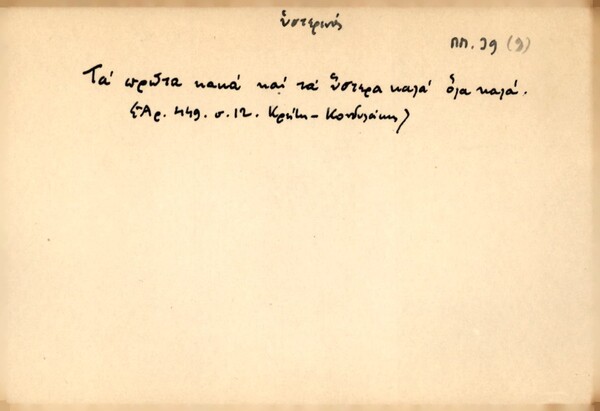 ὑστερινός
ΠΠ. 39 (9)
Τά πρῶτα κακά καί τά ὕστερα καλά ὅλα καλά.
(Ἀρ. 449. σ. 12. Κρήτη - Κονδυλάκης)